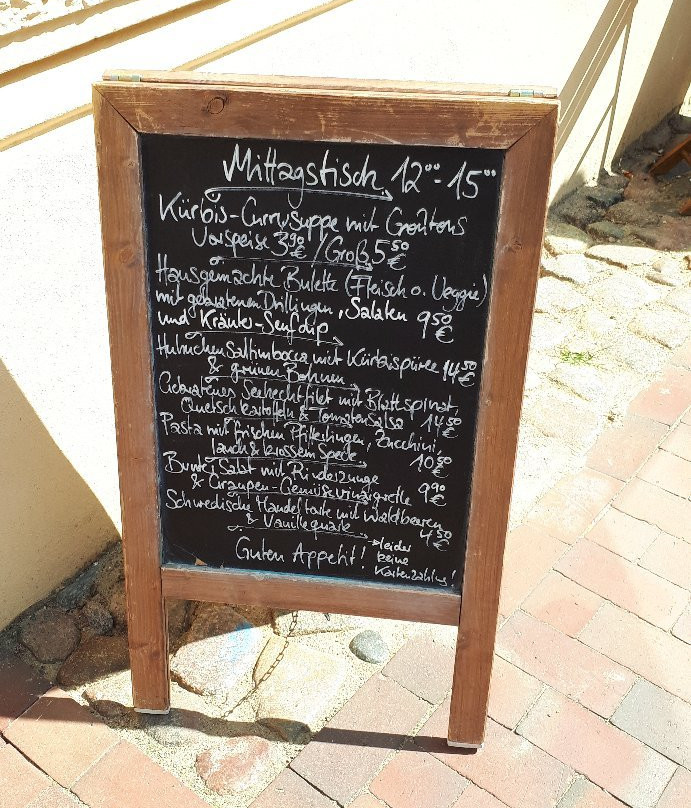 Mittagstisch 12⁰⁰-15⁰⁰
Kürbis-Currysuppe mit Croûtons
Vorspeise 3⁹⁰€ / Groß 5⁵⁰€
Hausgemachte Bulette (Fleisch o. Veggie)
mit gebratenen Drillingen, Salaten 9⁵⁰€
und Kräuter-Senfdip
Huhnchen Saltimbocca mit Kürbispüree 14⁵⁰€
& grünen Bohnen
Gebratenes Seehechtfilet mit Blattspinat,
Quetschkartoffeln & Tomatensalsa 14⁵⁰€
Pasta mit frischen Pfifferlingen, Zucchini,
Lauch & krossem Speck 10⁵⁰€
Bunter Salat mit Rinderzunge
& Graupen-Gemüsevinaigrette 9⁹⁰€
Schwedische Mandeltarte mit Waldbeeren
& Vanillequark 4⁵⁰€
Guten Appetit!
leider
keine
Kartenzahlung!